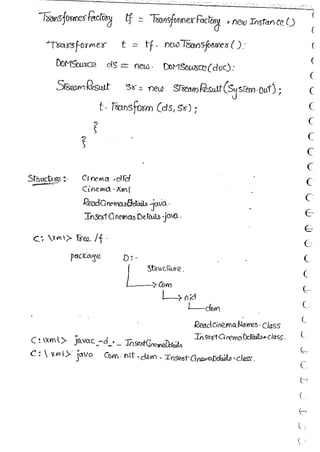 TransformerFactory tf = TransformerFactory.newInstance()
Transformer t = tf.newTransformer();
DOMSource ds = new DOMSource(doc);
StreamResult sr = new StreamResult(System.out);
t.transform(ds, sr);
}
}
Structure:-
Cinema.dtd
Cinema.xml
ReadCinemasDetails.java
InsertCinemasDetails.java
C:\xml> Tree /f
package D:-
Structure
com
nit
dom
ReadCinemaNames.class
InsertCinemaDetails.class
C:\xml> javac -d . InsertCinemaDetails
C:\xml> java com.nit.dom.InsertCinemaDetails.class.